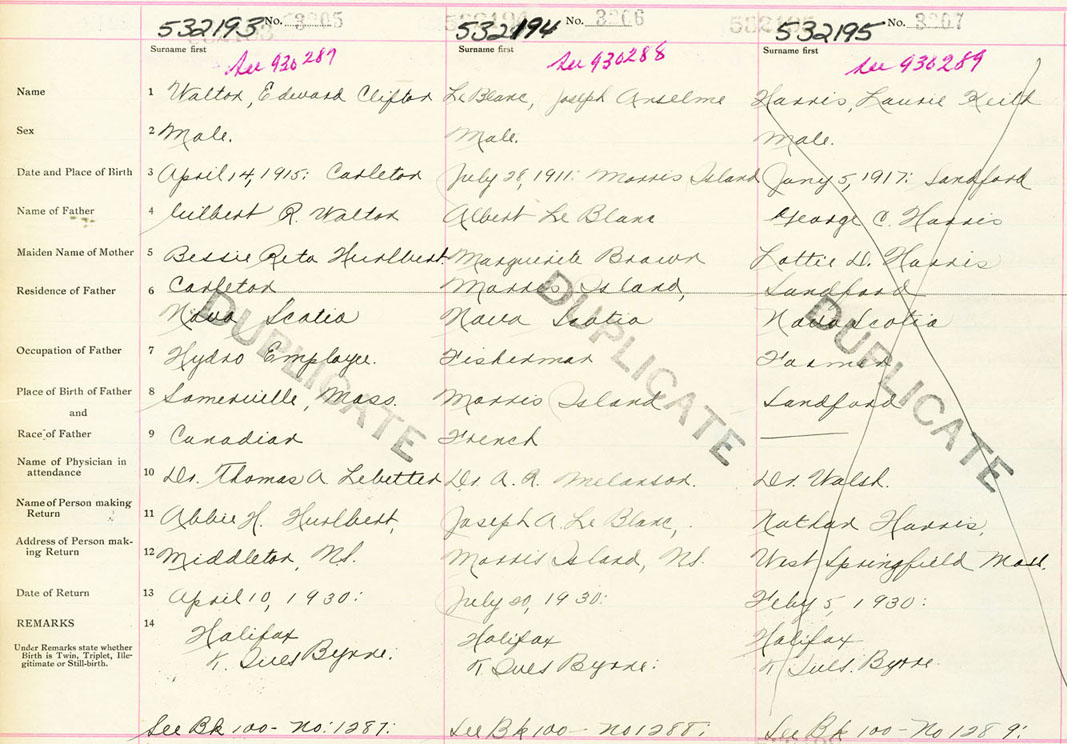 532193 No. 3205
532194 No. 3206
532195 No. 3207
Surname first
Surname first
Surname first
See 930287
See 930288
See 930289
Name 1 Walton, Edward Clifton
LeBlanc, Joseph Anselme
Harris, Laurie Keith
Sex 2 Male.
Male.
Male.
Date and Place of Birth 3 April 14, 1915: Carleton
July 28, 1911: Morris Island
Jany 5, 1917: Sandford
Name of Father 4 Gilbert R. Walton
Albert Le Blanc
George C. Harris
Maiden Name of Mother 5 Bessie Reta Hurlbert.
Marguerite Brown
Lottie D. Harris
Residence of Father 6 Carleton
Morris Island,
Sandford
Nova Scotia
Nova Scotia
Nova Scotia
Occupation of Father 7 Hydro Employee.
Fisherman
Farmer
Place of Birth of Father 8 Somerville, Mass.
Morris Island
Sandford
and
Race of Father 9 Canadian
French
Name of Physician in
attendance 10 Dr. Thomas A Lebetter
Dr. A. R. Melanson.
Dr. Walsh.
Name of Person making
Return 11 Abbie H. Hurlbert,
Joseph A. Le Blanc,
Nathan Harris,
Address of Person mak-
ing Return 12 Middleton, NS.
Morris Island, NS.
West Springfield Mass.
Date of Return 13 April 10, 1930:
July 20, 1930:
Feby 5, 1930:
REMARKS 14
Under Remarks state whether
Birth is Twin, Triplet, Ille-
gitimate or Still-birth.
Halifax
Byrne:
Halifax
Byrne:
Halifax
Byrne
DUPLICATE
DUPLICATE
DUPLICATE
See Bk 100- No: 1287:
See Bk 100- No 1288:
See Bk 100- No 1289: